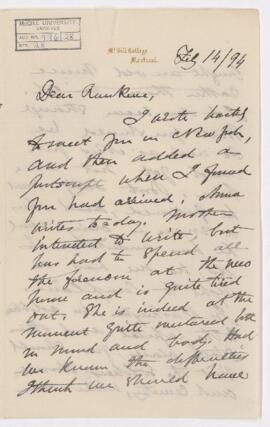 McGILL UNIVERSITY
ARCHIVES
ACC. NO.
REF.
McGill College
Montreal.
Feby 14/94
Dear Rankine,
I wrote hastily
to meet you in New York,
and then added a
postscript when I found
you had arrived; Anna
writes to-day. Mother
intended to write, but
has had to spend all
the forenoon at the new
house and is quite tired
out. She is indeed at the
moment quite
in mind and body. Had
we known the difficulties
I think we should have